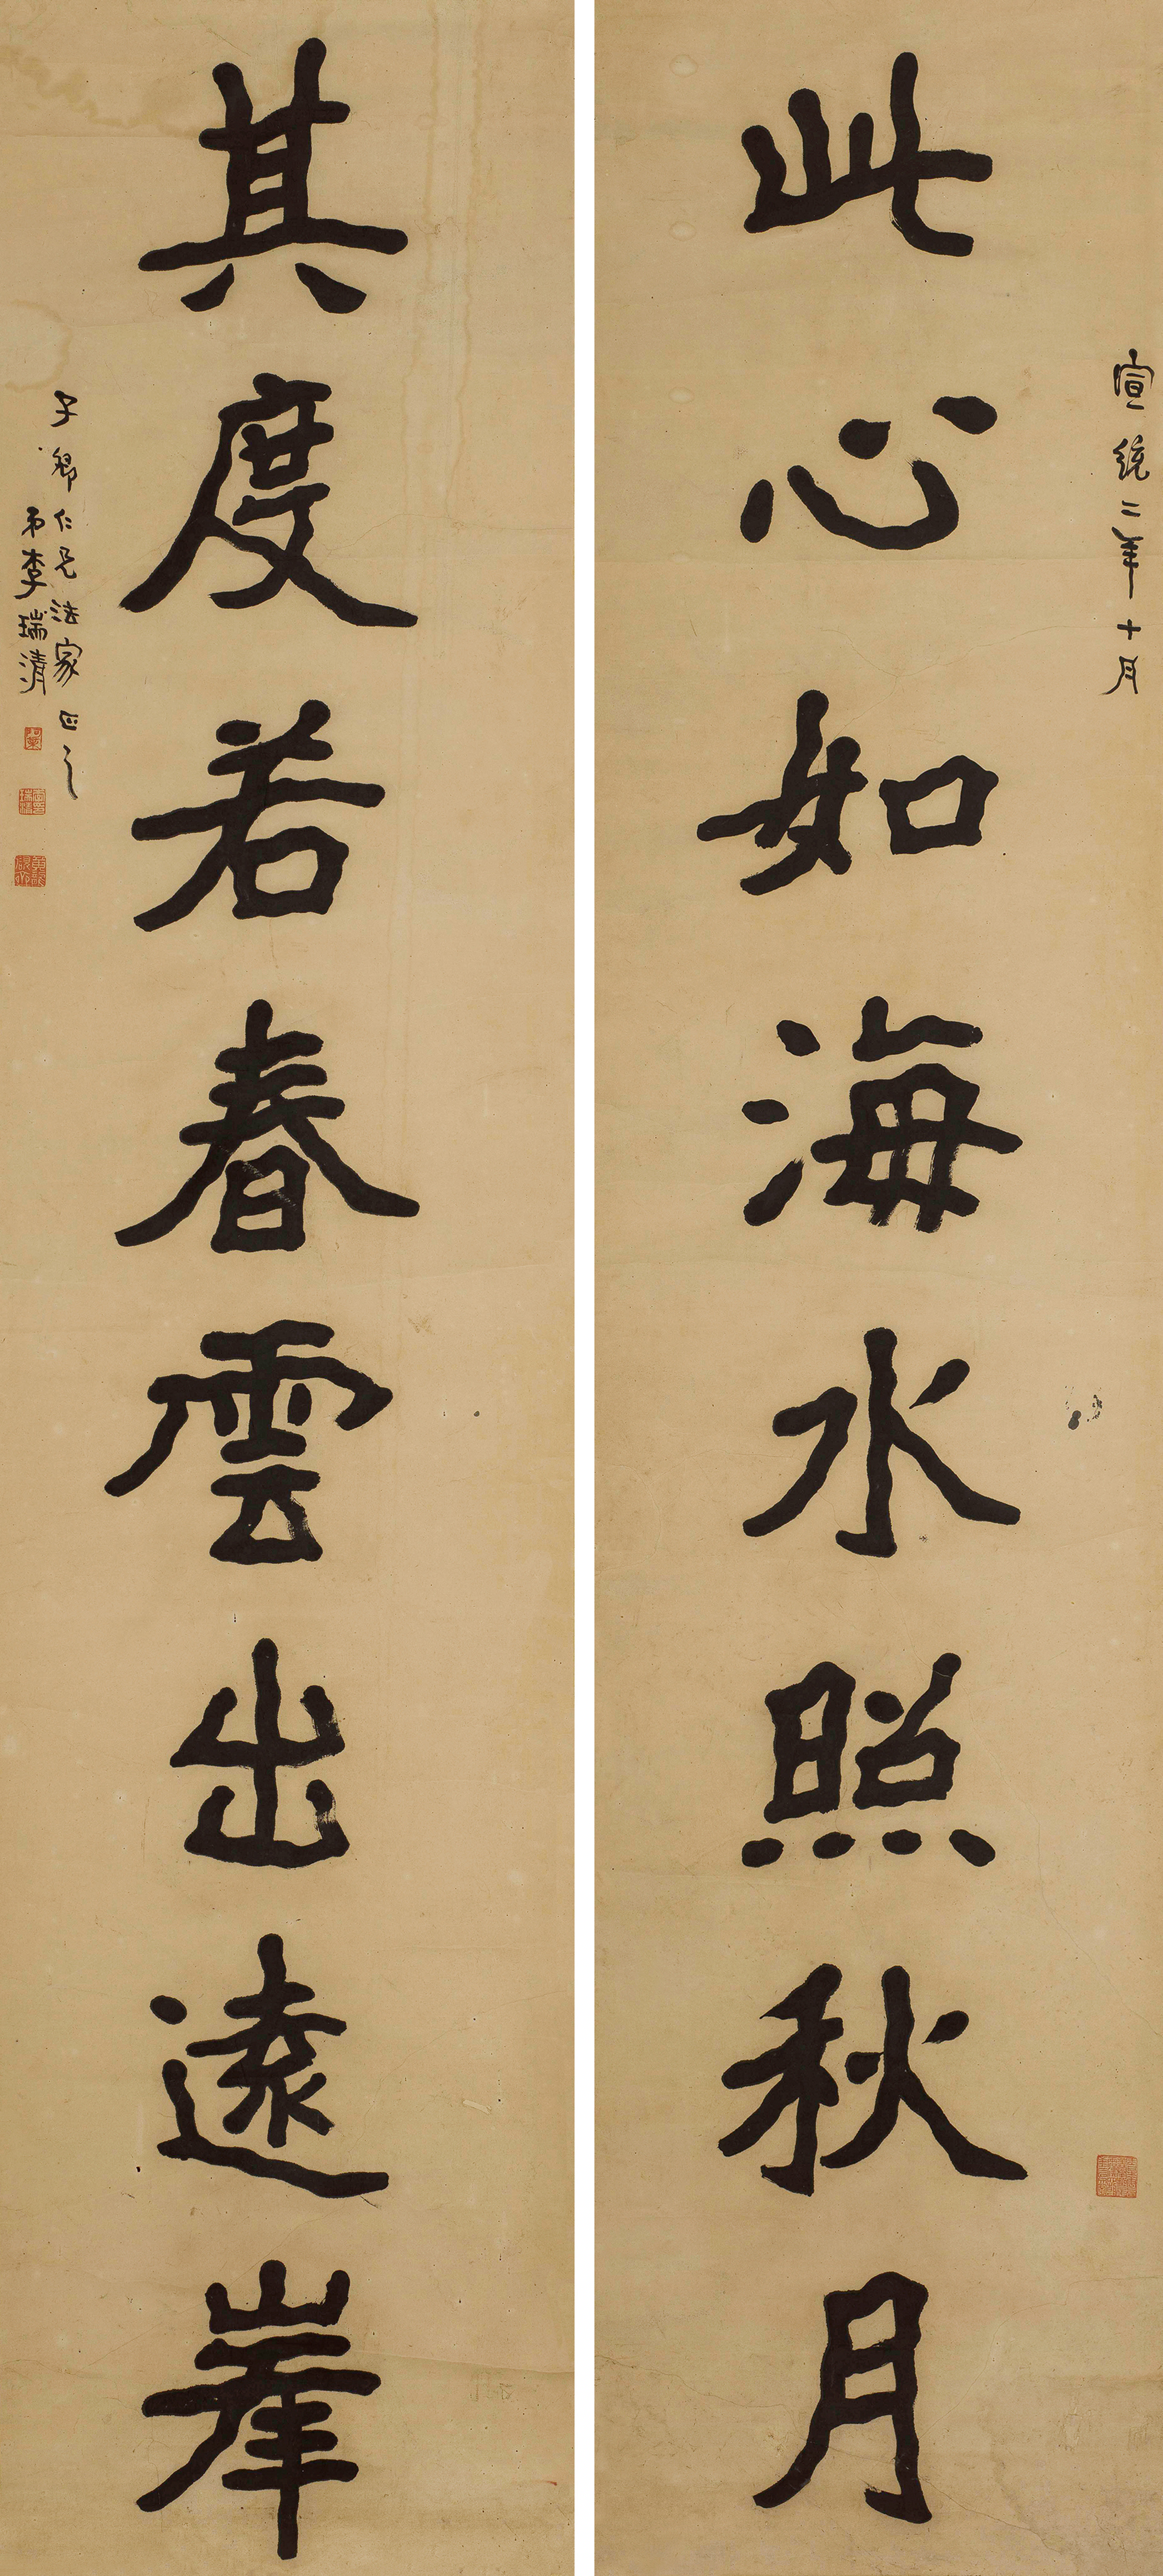 宣統二年十月
此心如海水照秋月
其度若春雲出遠岸
子卿仁兄法家正之
弟李瑞清